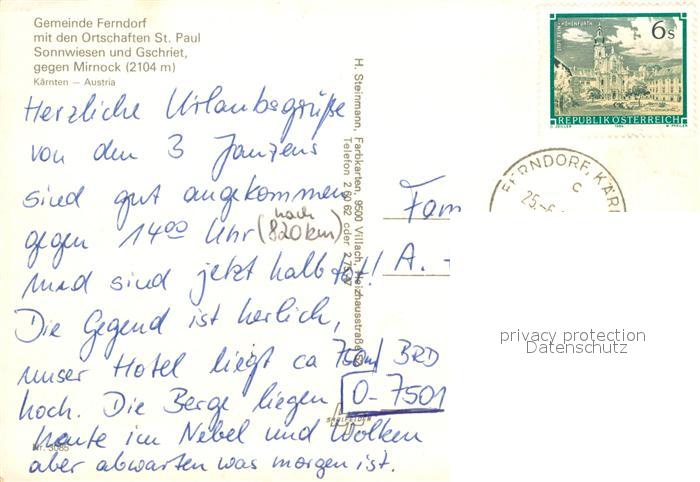 Gemeinde Ferndorf
mit den Ortschaften St. Paul
Sonnwiesen und Gschriet,
gegen Mirnock (2104 m)
Kärnten — Austria
Herzliche Urlaubsgrüße
von den 3 Janzens
sind gut angekommen
gegen 14⁰⁰ Uhr (nach 820 km)
und sind jetzt halb tot!
Die Gegend ist herlich,
unser Hotel liegt ca 750m
hoch. Die Berge liegen
heute im Nebel und Wolken
aber abwarten was morgen ist.
Nr. 3085
H. Steinmann, Farbkarten, 9500 Villach, Heizhausstraße
Telefon 2 60 62 oder 2
6 s
REPUBLIK ÖSTERREICH
1984
FERNDORF, KÄR
c
25.-6.
Fam
A. -
BRD
O-7501
privacy protection
Datenschutz